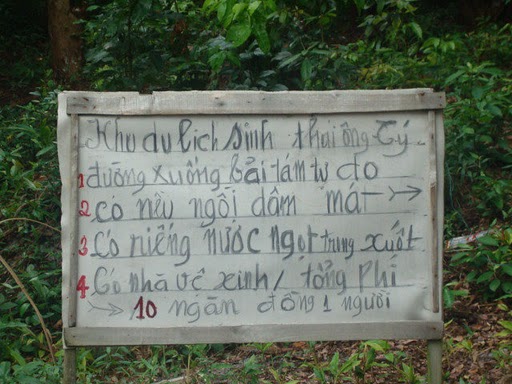 Khu du lịch sinh thái ông Tý
1 đường xuống bải tám tự do
2 có nều ngồi dâm mát
3 Có riếng nước ngọt trung xuốt
4 Có nhà vê xinh / tổng phí
10 ngàn đồng 1 người